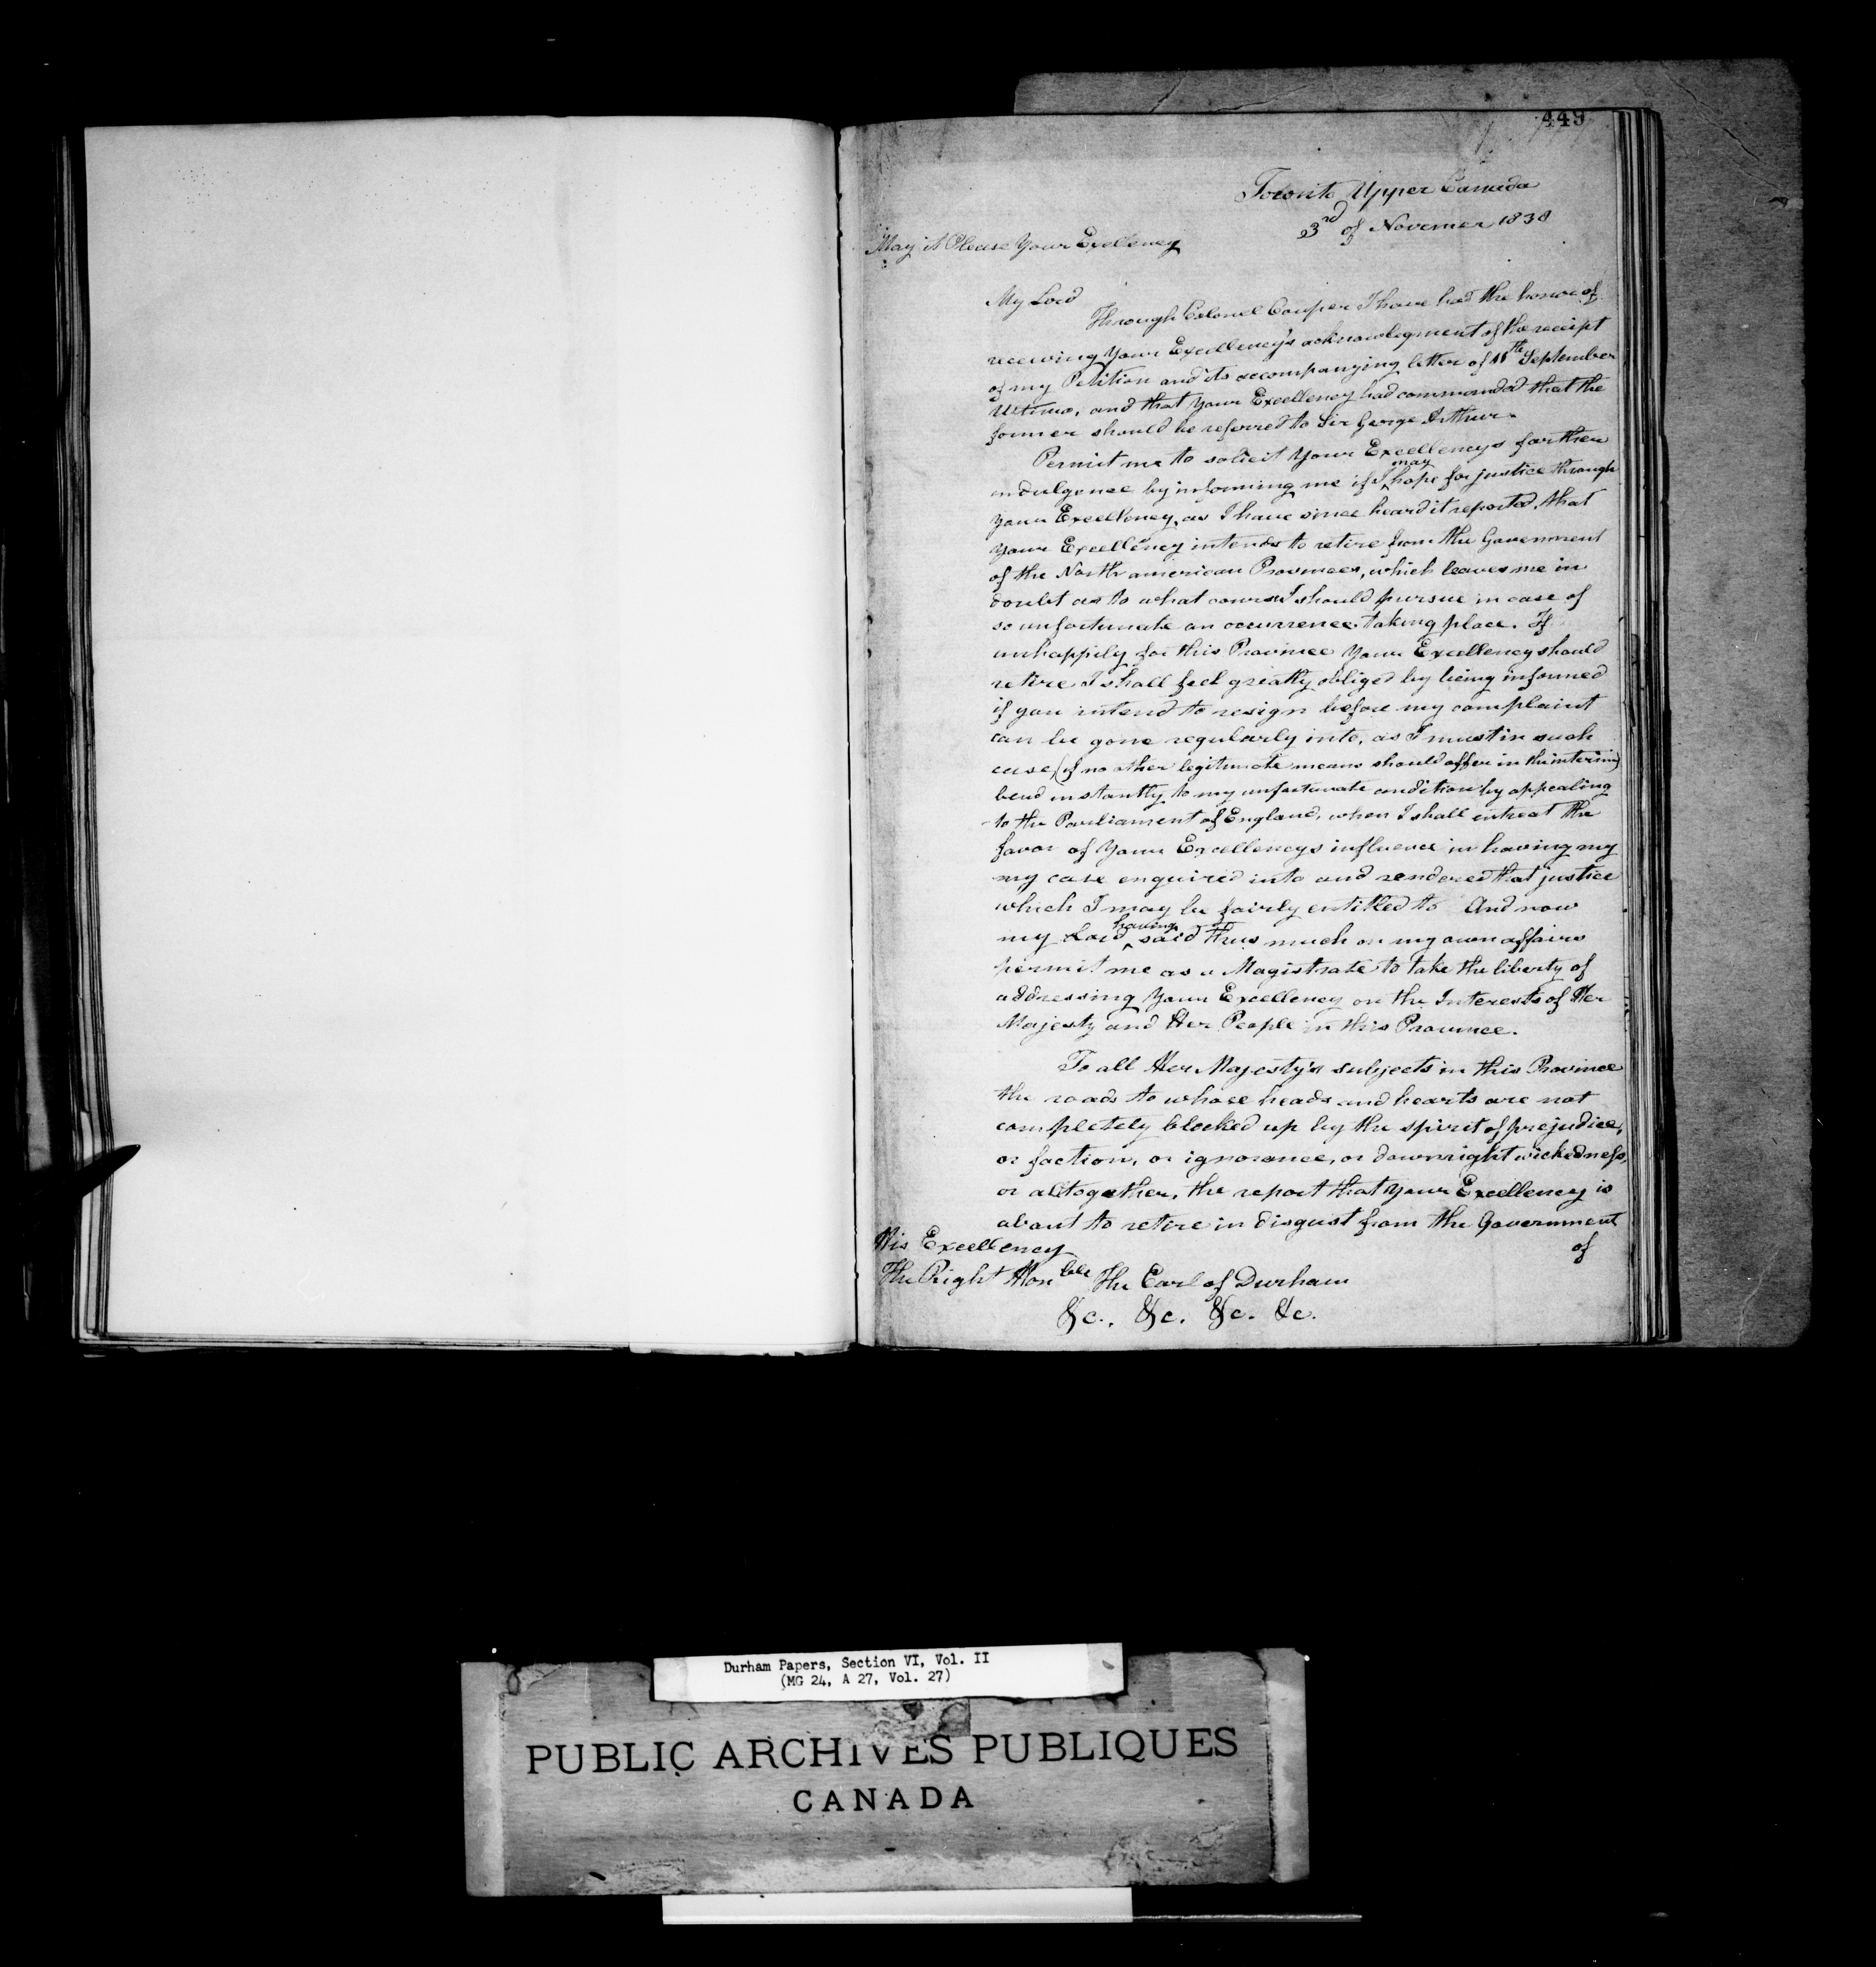 449
Toronto Upper Canada
3rd of Novemer 1838
May it Please Your Exellency
My Lord
Through Colonel Couper I have had the honor of
receiving Your Excellency's acknowlegment of the receipt
of my Petition and its accompanying letter of 11th September
Ultimo, and that Your Excellency had commanded that the
former should be referred to Sir George Arthur.
Permit me to solicit Your Excellencys farther
indulgence by informing me if I may hope for justice through
Your Excellency, as I have since heard it reported, that
Your Excellency intends to retire from the Government
of the North american Provinces, which leaves me in
doubt as to what course I should pursue in case of
so unfortunate an occurrence taking place. If
unhappily for this Province Your Excellency should
retire I shall feel greatly obliged by being informed
if you intend to resign before my complaint
can be gone regularly into, as I must in such
case, (if no other legitimate means should offer in the interim)
bend instantly to my unfortunate condition by appealing
to the Parliament of England, when I shall intreat the
favor of Your Excellencys influence in having my
my case enquired into and rendered that justice
which I may be fairly entitled to And now
my Lord having said thus much on my own affairs
permit me as a Magistrate to take the liberty of
addressing Your Excellency on the Interests of Her
Majesty and Her People in this Province.
To all Her Majesty's subjects in this Province
the roads to whose heads and hearts are not
completely blocked up by the spirit of prejudice,
or faction, or ignorance, or downright wickedness,
or altogether, the report that Your Excellency is
about to retire in disgust from the Government
of
His Excellency
The Right Honble The Earl of Durham
&c., &c. &c. &c.
Durham Papers, Section VI, Vol. II
(MG 24, A 27, Vol. 27)
PUBLIC ARCHIVES PUBLIQUES
CANADA